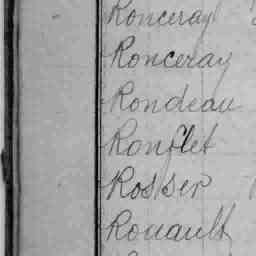 Ronceray
Ronceray
Rondeau
Ronflet
Rosser
Rouault